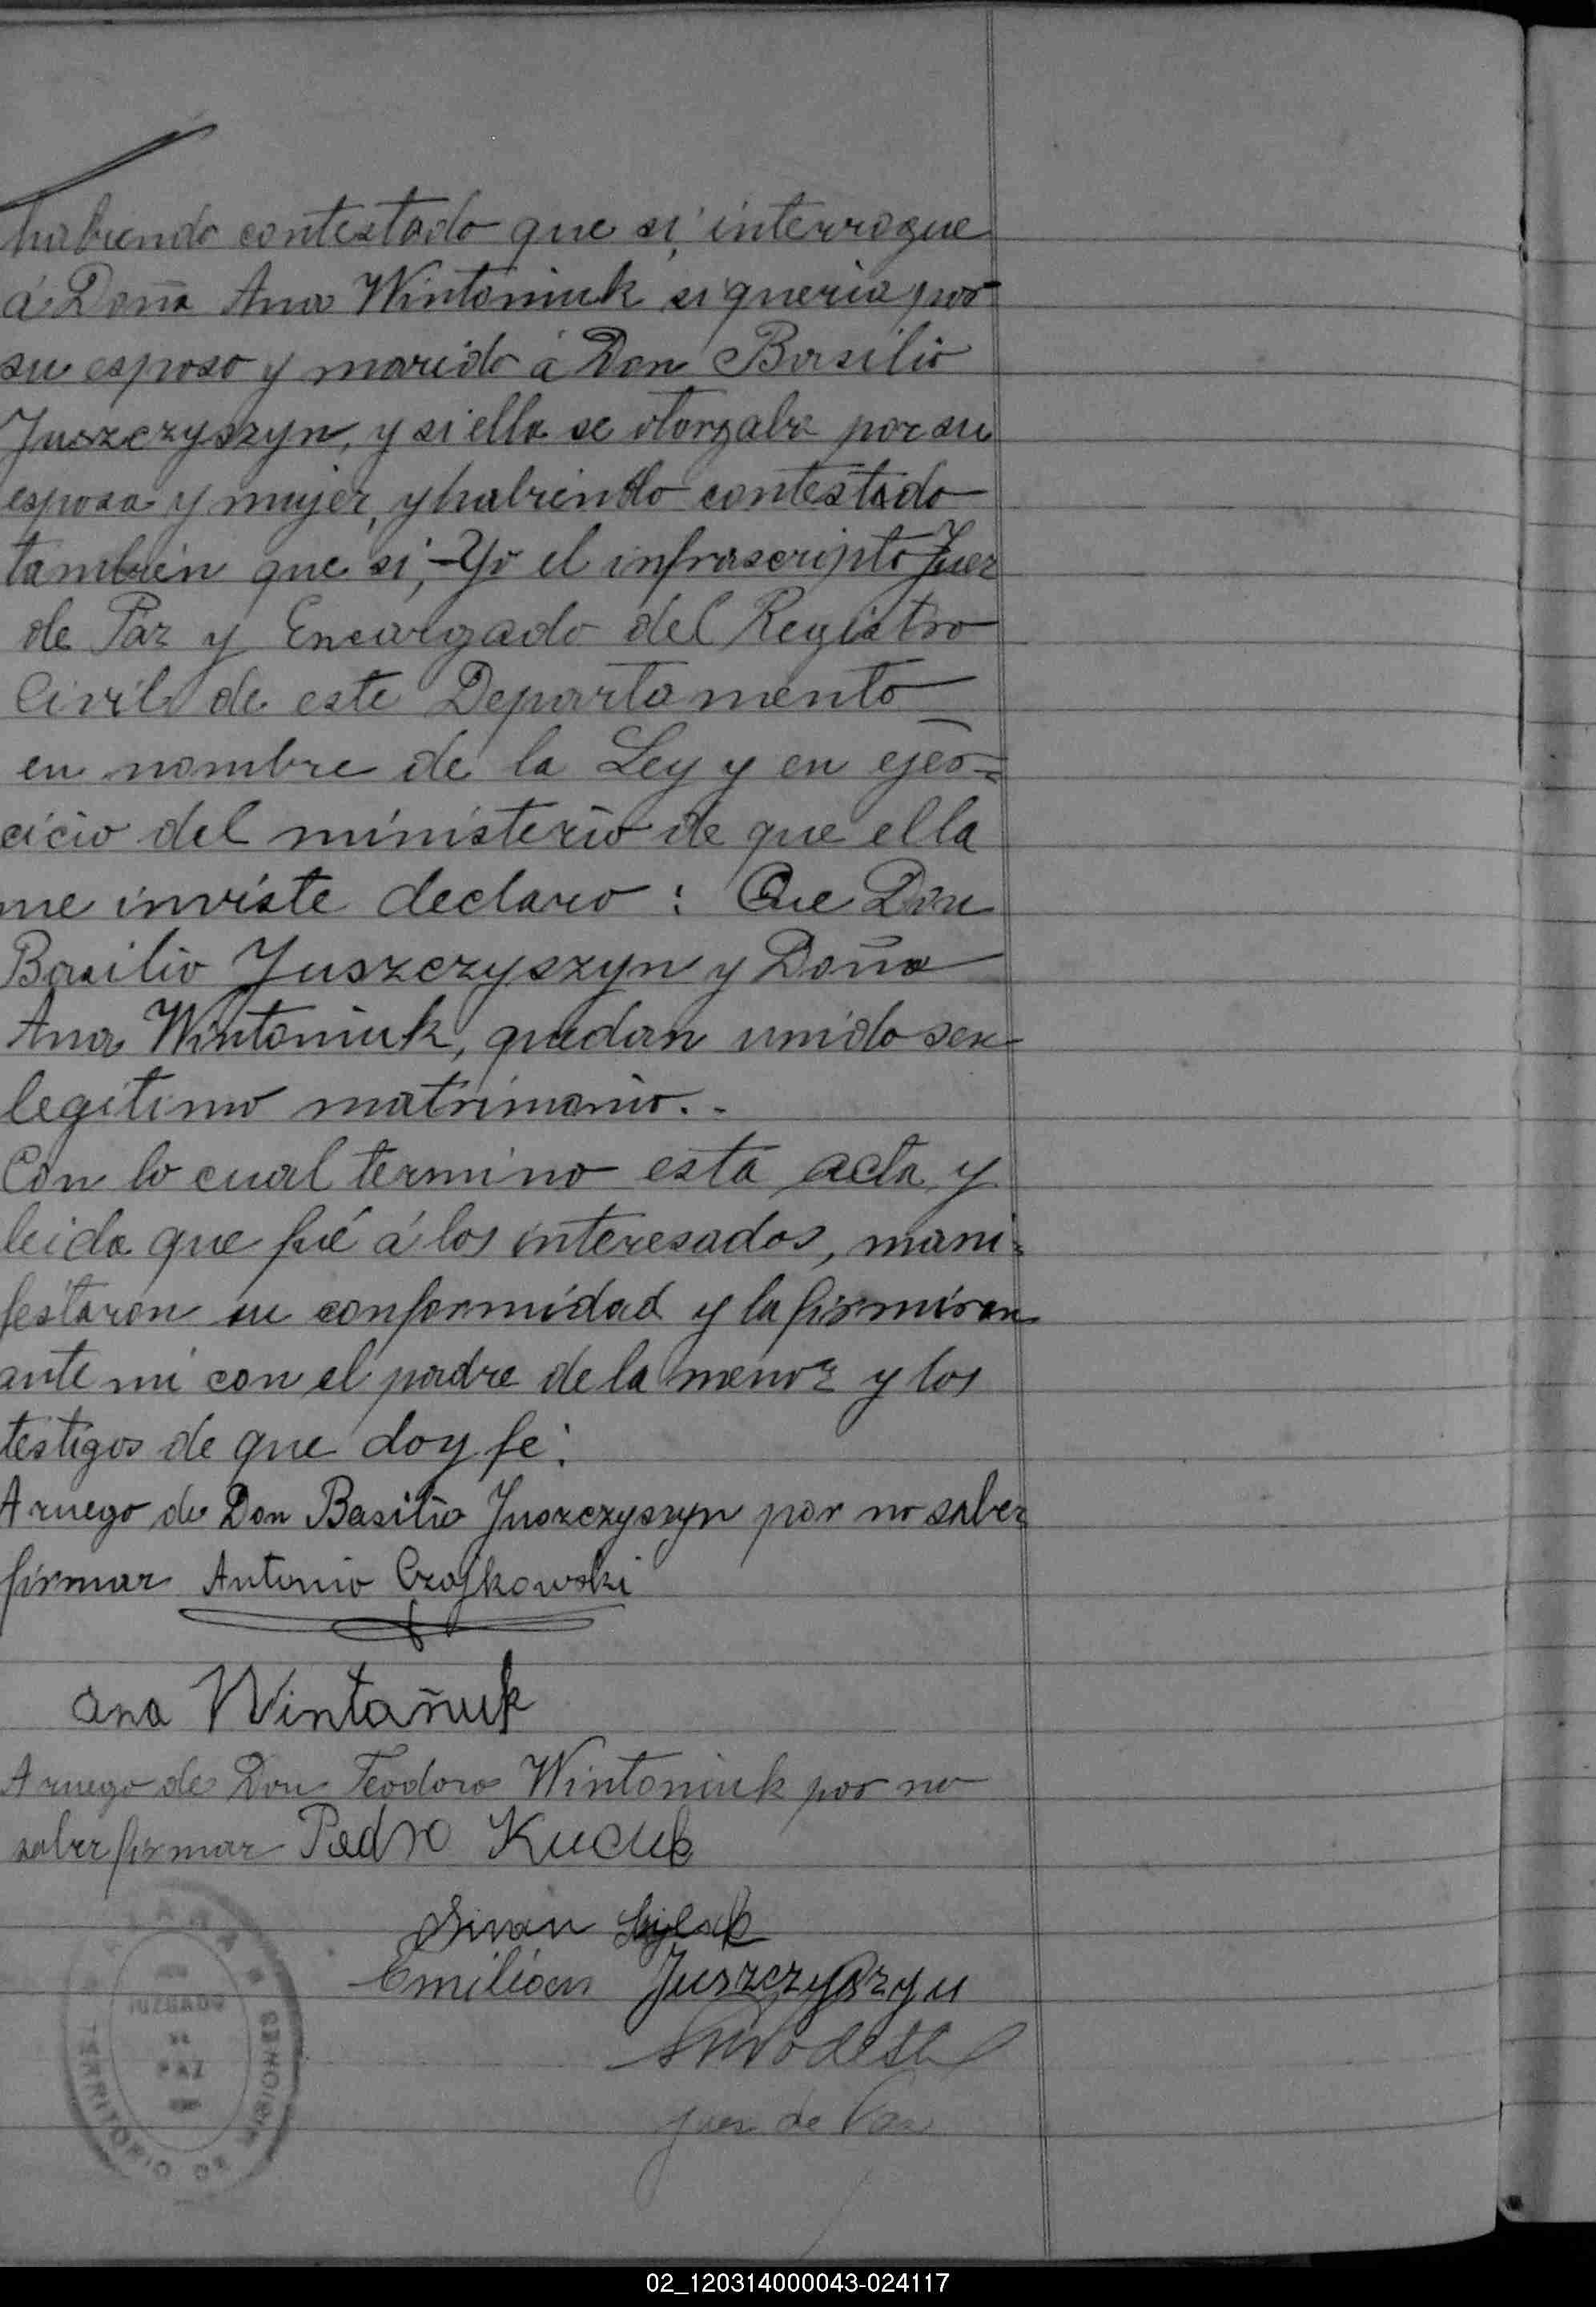 habiendo contestado que si, interrogue
á Doña Ana Wintoniuk si queria por
su esposo y marido á Don Basilio
Juszczyszyn, y si ella se otorgaba por su
esposa y mujer, y habiendo contestado
tambien que si,- Yo el infrascripto Juez
de Paz y Encargado del Registro
Civil de este Departamento
en nombre de la Ley y en ejer=
cicio del ministerio de que ella
me inviste declaro : Que Don
Basilio Juszczyszyn y Doña
Ana Wintoniuk, quedan unidos en
legitimo matrimonio. -
Con lo cual termino esta acta y
leida que fué á los interesados, mani=
festaron su conformidad y la firmaron
ante mi con el padre de la menor y los
testigos de que doy fe:
A ruego de Don Basilio Juszczyszyn por no saber
firmar Antonio Czajkowski
Ana Wintañuk
A ruego de Don Teodoro Wintoniuk por no
saber firmar Pedro Kucuk
Emilian Juszczyszyn
juez de Paz
JUZGADO
DE
PAZ
TERRITORIO DE MISIONES
02_120314000043-024117